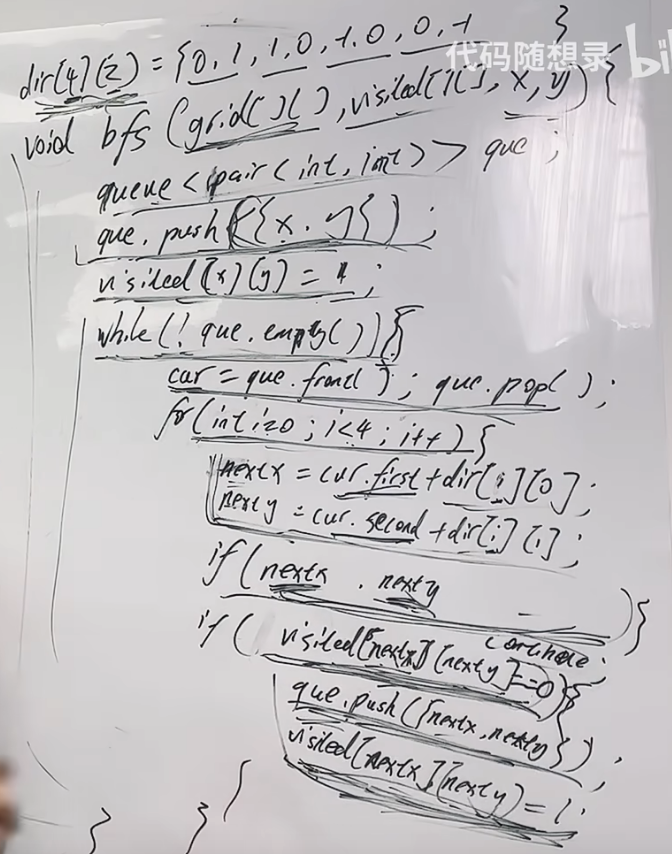 dir[4][2] = {0, 1, 1, 0, -1, 0, 0, -1 }
代码随想录 bil
void bfs (grid[][], visited[][], x, y) {
queue<pair<int, int>> que;
que.push({x, y});
visited[x][y] = 1;
while(! que.empty()) {
cur = que.front(); que.pop();
for(int i=0; i<4; i++) {
nextx = cur.first + dir[i][0];
nexty = cur.second + dir[i][1];
if (nextx . nexty ) {
continue;
if ( visited[nextx][nexty]==0) {
que.push({nextx, nexty});
visited[nextx][nexty] = 1;
}
} }